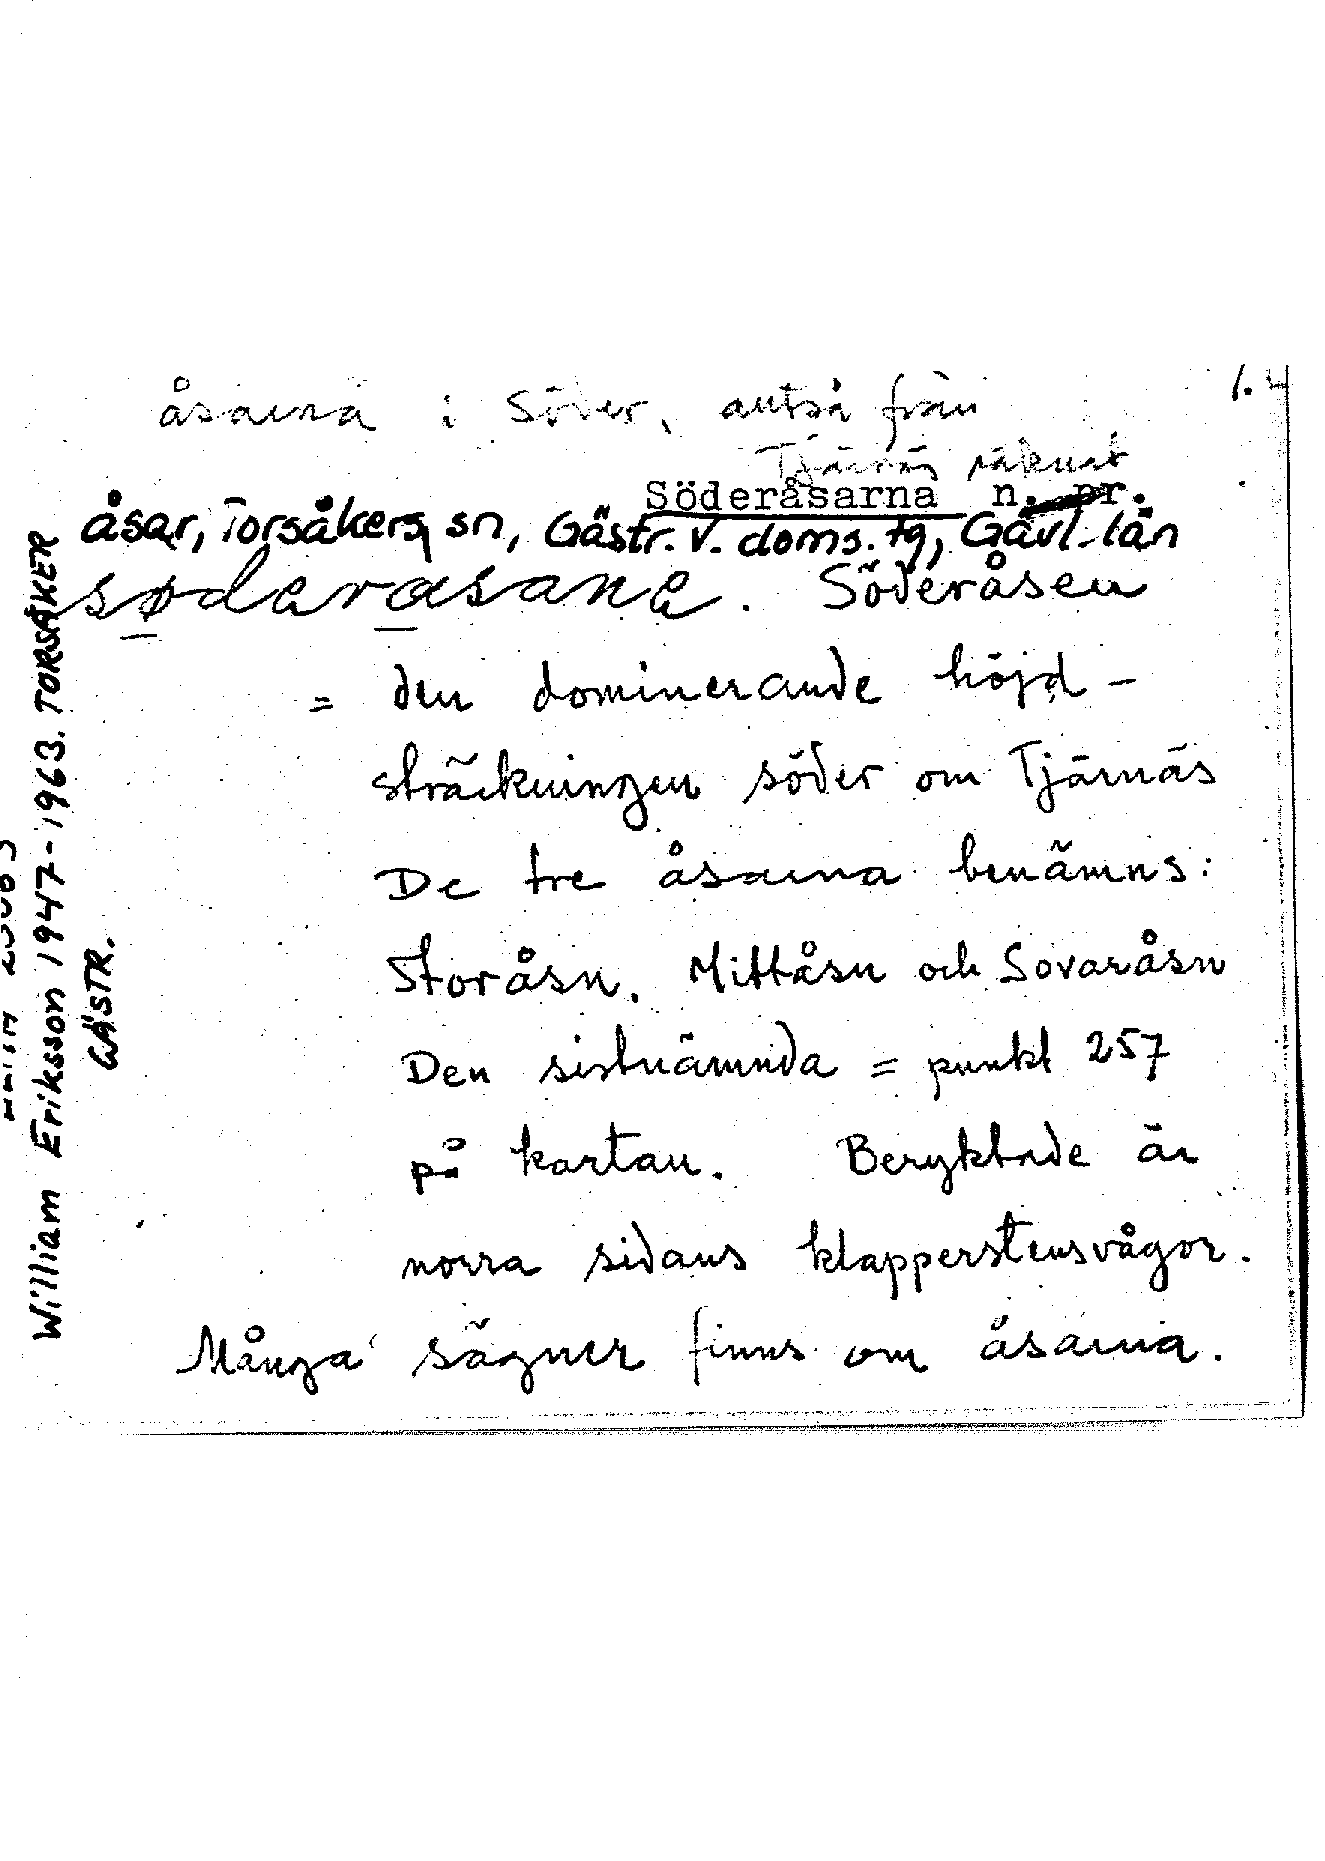 åsarna i Söder, alltså från
Tjärnäs räknat
Söderåsarna n. pr.
åsar, Torsåkers sn, Gästr. V. doms. tg, Gävl. län
Söderåsen
= den dominerande höjd-
sträckningen söder om Tjärnäs
De tre åsarna benämns:
Storåsn, Mittåsn och Sovaråsn
Den sistnämnda = punkt 257
på kartan. Beryktade är
norra sidans klapperstensvågor.
Många sägner finns om åsarna.
William Eriksson 1947-1963. TORSÅKER
GÄSTR.